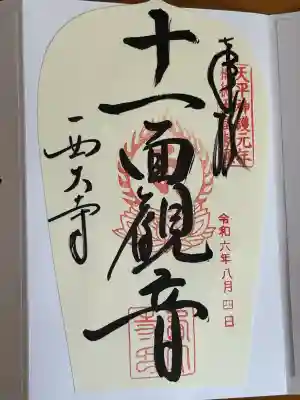 奉拝
天平神護元年
令和六年八月四日
十一面観音
西大寺